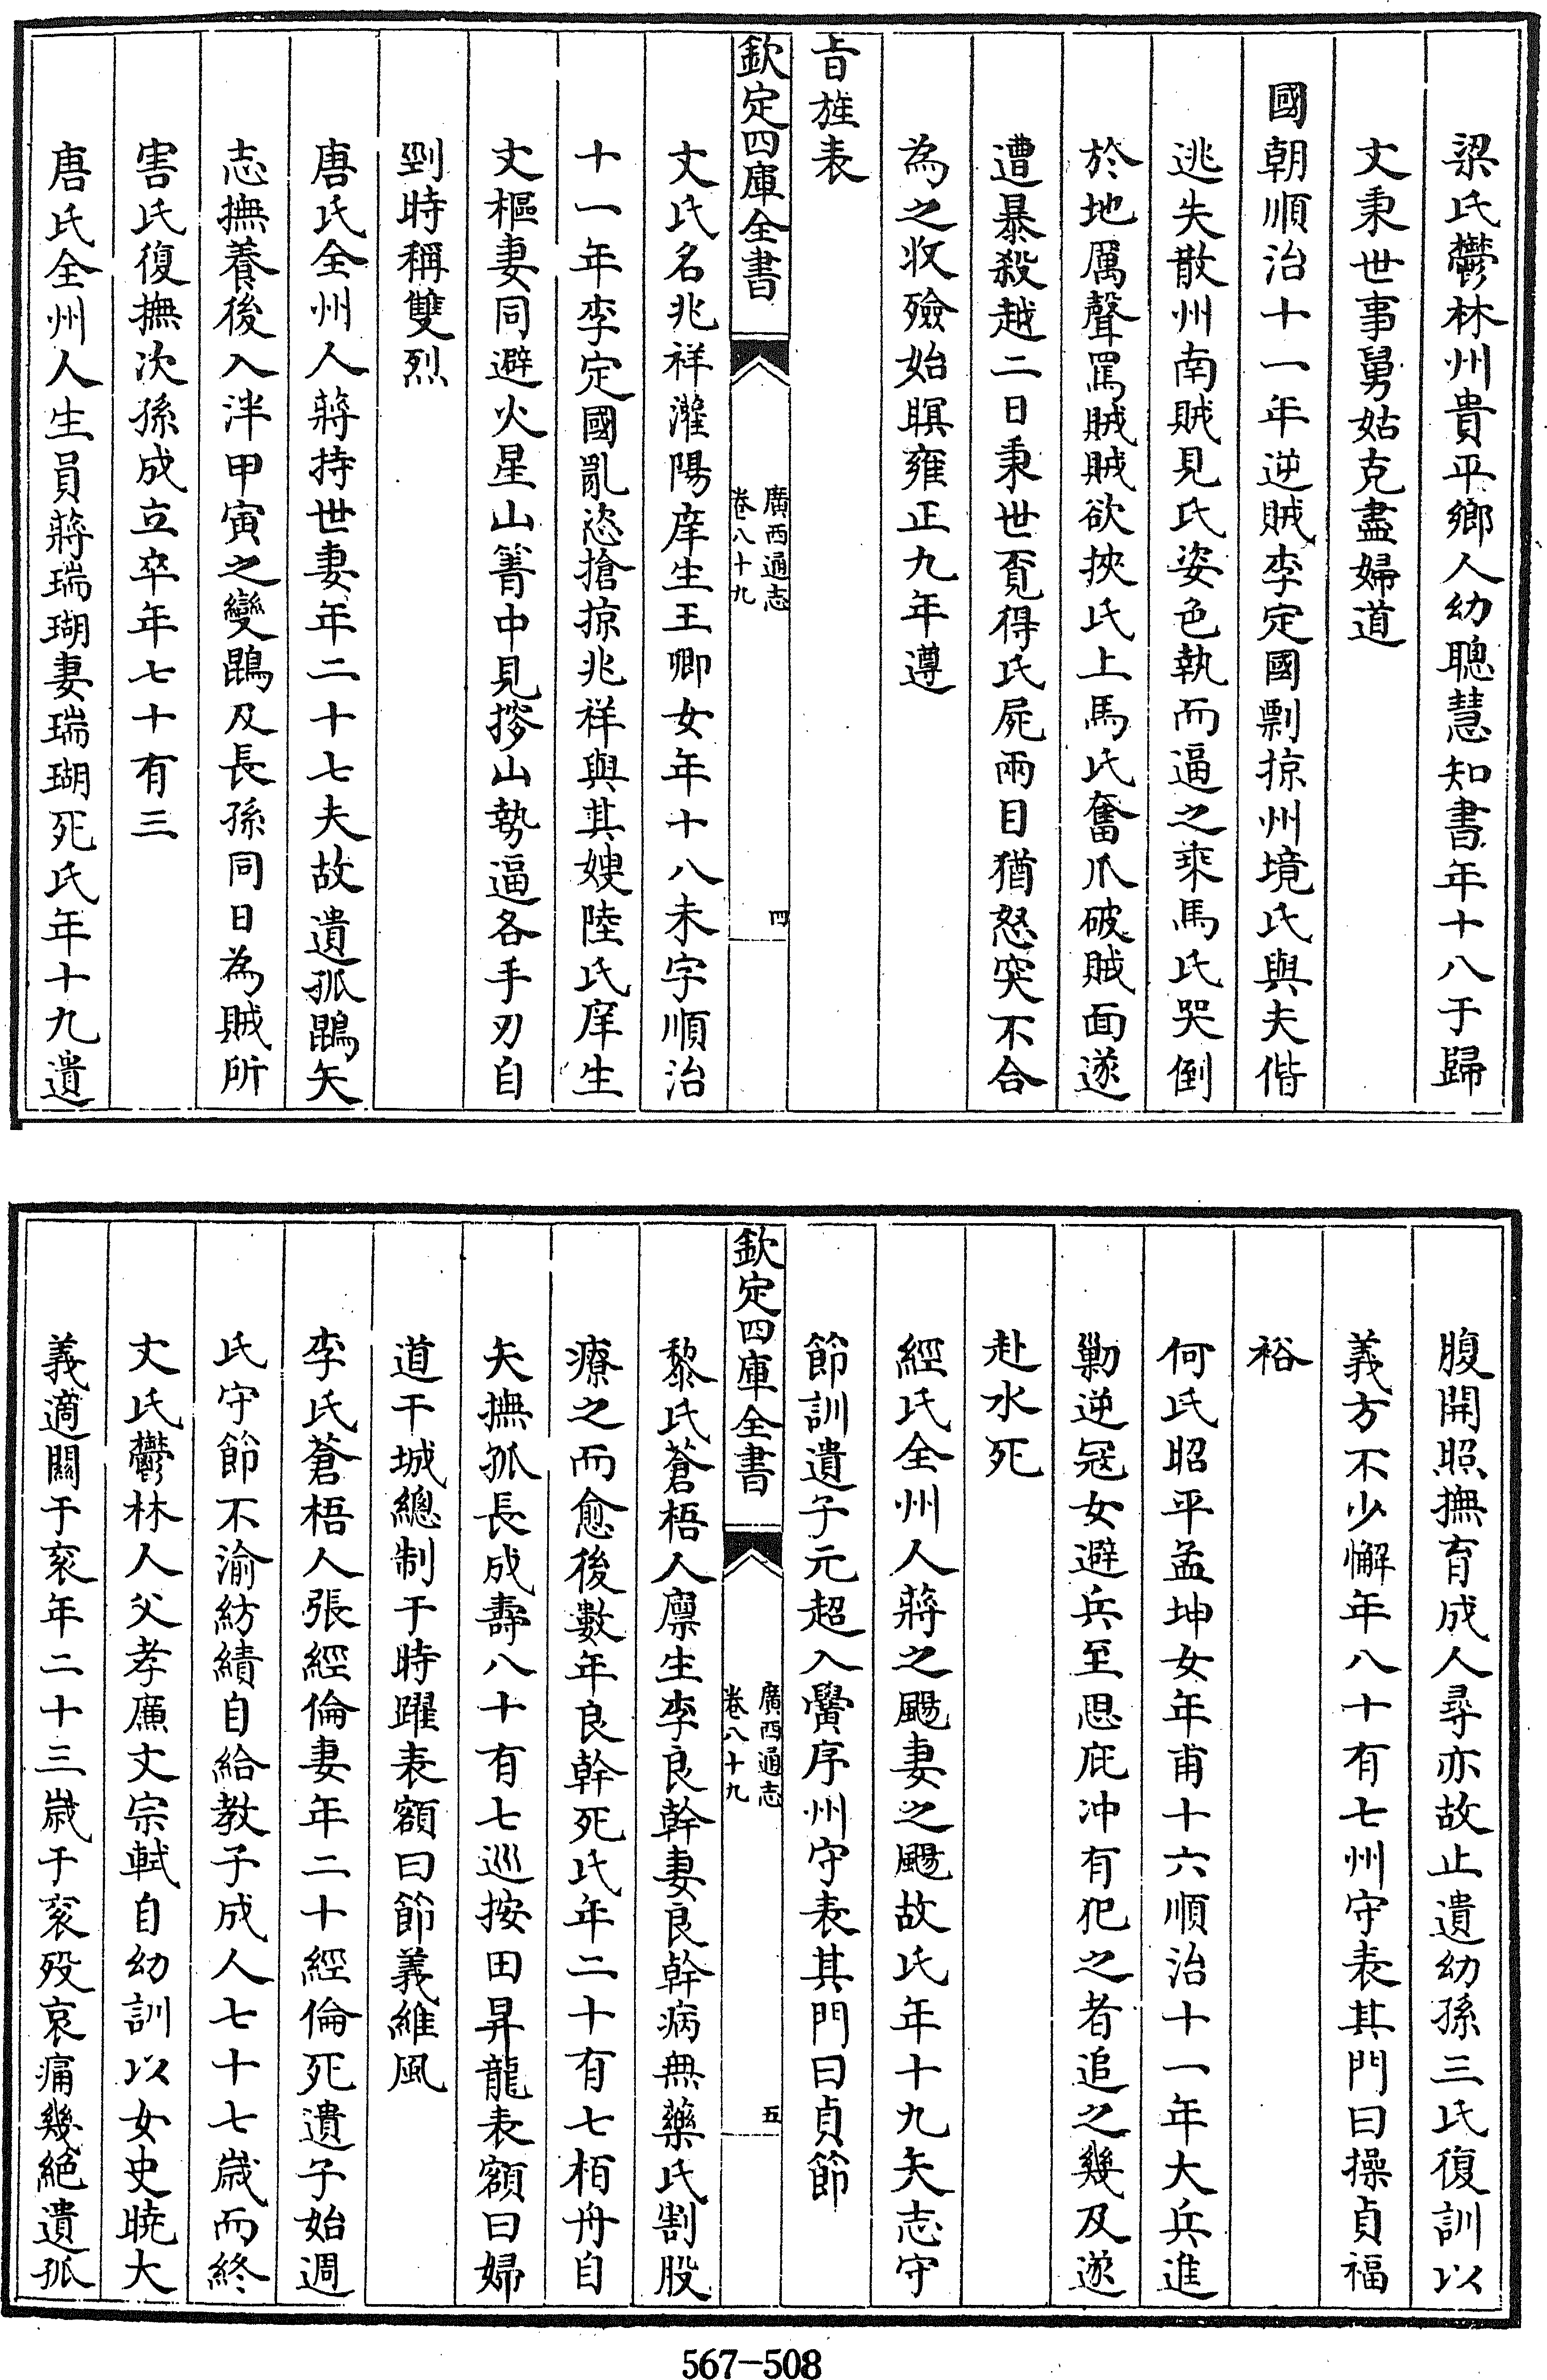 梁氏鬱林州貴平鄉人幼聰慧知書年十八于歸
文秉世事舅姑克盡婦道
國朝順治十一年逆賊李定國剽掠州境氏與夫偕
逃失散州南賊見氏姿色執而逼之乘馬氏哭倒
於地厲聲罵賊賊欲挾氏上馬氏奮爪破賊面遂
遭暴殺越二日秉世覔得氏屍兩目猶怒突不合
為之收殮始瞑雍正九年遵
旨旌表
欽定四庫全書
廣西通志
卷八十九
四
文氏名兆祥灌陽庠生王卿女年十八未字順治
十一年李定國亂恣搶掠兆祥與其嫂陸氏庠生
文樞妻同避火星山箐中見搜山勢逼各手刃自
剄時稱雙烈
唐氏全州人蔣持世妻年二十七夫故遺孤鵾矢
志撫養後入泮甲寅之變鵾及長孫同日為賊所
害氏復撫次孫成立卒年七十有三
唐氏全州人生員蔣瑞瑚妻瑞瑚死氏年十九遺
腹開照撫育成人尋亦故止遺幼孫三氏復訓以
義方不少懈年八十有七州守表其門曰操貞福
裕
何氏昭平孟坤女年甫十六順治十一年大兵進
勦逆冦女避兵至思庇冲有犯之者追之幾及遂
赴水死
經氏全州人蔣之颺妻之颺故氏年十九矢志守
節訓遺子元超入黌序州守表其門曰貞節
欽定四庫全書
廣西通志
卷八十九
五
黎氏蒼梧人廪生李良幹妻良幹病無藥氏割股
療之而愈後數年良幹死氏年二十有七栢舟自
矢撫孤長成壽八十有七巡按田昇龍表額曰婦
道干城總制于時躍表額曰節義維風
李氏蒼梧人張經倫妻年二十經倫死遺子始週
氏守節不渝紡績自給教子成人七十七歲而終
文氏鬱林人父孝廉文宗軾自幼訓以女史曉大
義適關于衮年二十三歲于衮殁哀痛幾絕遺孤
567-508